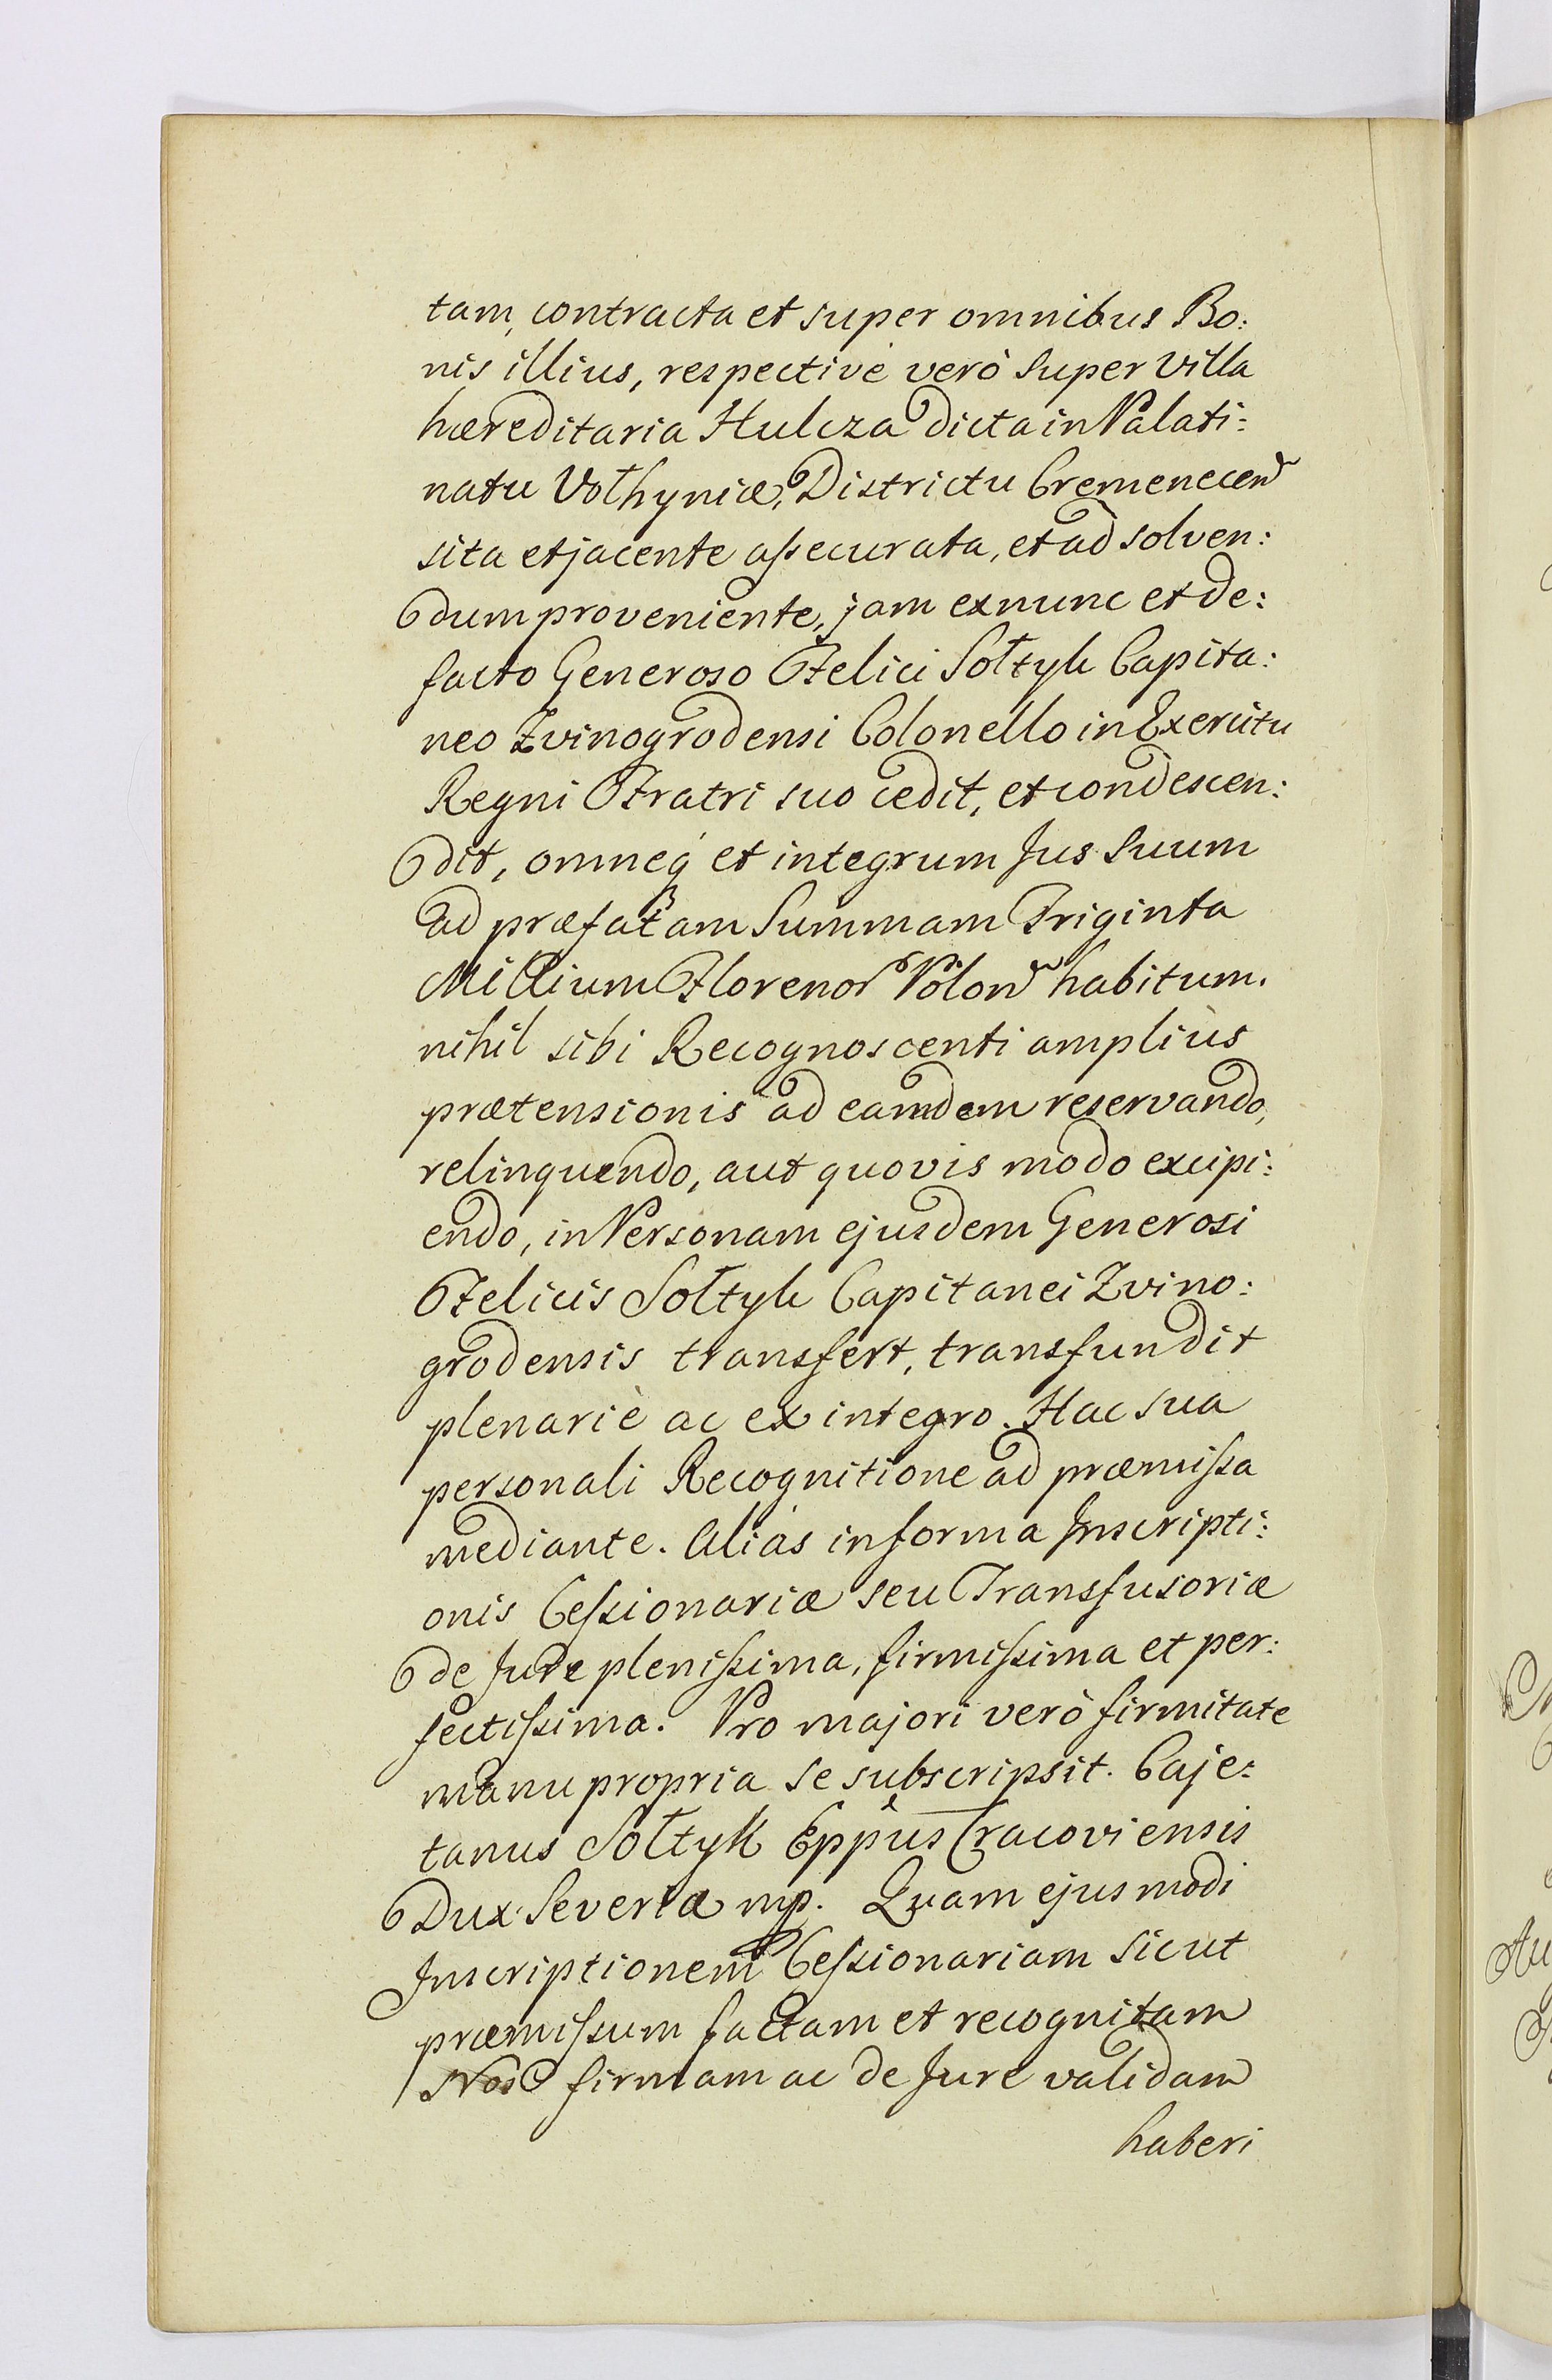 tam, contracta et super omnibus Bo:
nis illius, respectivè verò super Villa
hæreditaria Hulcza dicta in Palati:
natu Volhyniæ, Districtu Cremenecen
sita et jacente aſsecurata, et ad solven:
dum proveniente, jam ex nunc et de:
facto Generoso Felici Sołtyk Capita:
neo Zvinogrodensi Colonello in Exercitu
Regni Fratri suo cedit, et condescen:
dit, omneq́ et integrum Jus Suum
ad præfatam Summam Triginta
Millium Florenor Polon habitum.
nihil sibi Recognoscenti ampliùs
prætensionis ad eamdem reservando,
relinquendo, aut quovis modo excipi:
endo, in Personam ejusdem Generosi
Felicis Sołtyk Capitanei Zvino:
grodensis transfert, transfundit
plenariè ac ex integro. Hac sua
personali Recognitione ad præmiſsa
mediante. Aliàs in forma Inscripti:
onis Ceſsionariæ seu Transfusoriæ
de Jure pleniſsima, firmiſsima et per:
fectiſsima. Pro majori verò firmitate
manu propria se subscripsit. Caje:
tanus Sołtyk Eppus Cracoviensis
Dux Severiæ mp. Quam ejusmodi
Inscriptionem Ceſsionariam sicut
præmiſsum factam et recognitam
Nos firmam ac de Jure validam
haberi